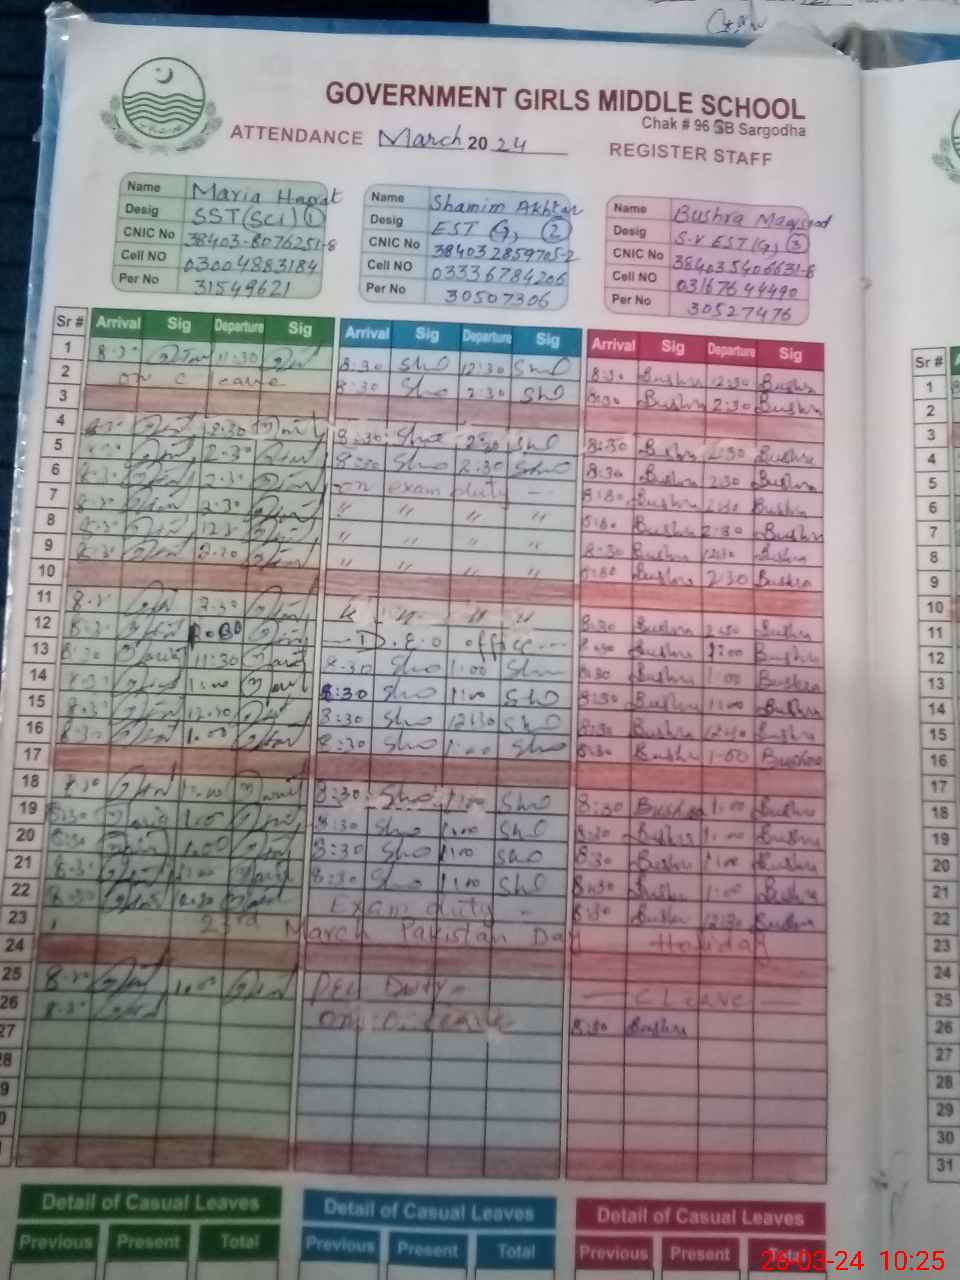 GOVERNMENT GIRLS MIDDLE SCHOOL
Chak # 96 SB Sargodha
ATTENDANCE March 2024 REGISTER STAFF
Name Maria
Desig SST(Sci) 1
CNIC No 38403-8076251-8
Cell NO 03004883184
Per No 31549621
Name Shamim Akhtar
Desig EST (G) 2
CNIC No 384032859705-2
Cell NO 03336784206
Per No 30507306
Name Bushra Maqsood
Desig S.V EST(G) 3
CNIC No 384035406631-8
Cell NO 03167644490
Per No 30527476
Sr # Arrival Sig Departure Sig Arrival Sig Departure Sig Arrival Sig Departure Sig Sr #
1 8:30 11:30 8:30 Sho 12:30 Sho 8:30 Bushra 12:30 Bushra 1
2 on C leave 8:30 Sho 2:30 Sho 8:30 Bushra 2:30 Bushra 2
3 3
4 8:30 Sho 2:30 Sho 8:30 Bushra 2:30 Bushra 4
5 2:30 8:30 Sho 2:30 Sho 8:30 Bushra 2:30 Bushra 5
6 8:30 2:30 on exam duty 8:30 Bushra 2:30 Bushra 6
7 8:30 2:30 " " " " 8:30 Bushra 2:30 Bushra 7
8 8:30 " " " " 8:30 Bushra 12:30 Bushra 8
9 8:30 2:30 " " " " 8:30 Bushra 2:30 Bushra 9
10 10
11 8:30 2:30 " " " 8:30 Bushra 2:30 Bushra 11
12 8:30 D.E.O office 8:30 Bushra Bushra 12
13 8:30 11:30 8:30 Sho 1:00 Sho 8:30 Bushra 1:00 Bushra 13
14 8:30 1:00 8:30 Sho 1:00 Sho 8:30 Bushra 1:00 Bushra 14
15 8:30 12:30 8:30 Sho 12:30 Sho 8:30 Bushra 12:30 Bushra 15
16 8:30 1:00 8:30 Sho 1:00 Sho 8:30 Bushra 1:00 Bushra 16
17 17
18 8:30 1:00 8:30 Sho 1:00 Sho 8:30 Bushra 1:00 Bushra 18
19 8:30 1:00 8:30 Sho 1:00 Sho 8:30 Bushra 1:00 Bushra 19
20 8:30 1:00 8:30 Sho 1:00 Sho 8:30 Bushra 1:00 Bushra 20
21 8:30 1:00 8:30 Sho 1:00 Sho 8:30 Bushra 1:00 Bushra 21
22 8:30 12:30 Exam duty 8:30 Bushra 12:30 Bushra 22
23 23rd March Pakistan Day Holiday 23
24 24
25 8:30 1:00 Duty C Leave 25
26 8:30 on C. leave 8:30 Bushra 26
27 27
28 28
29 29
30 30
31 31
Detail of Casual Leaves Detail of Casual Leaves Detail of Casual Leaves
Previous Present Total Previous Present Total Previous Present Total
26-03-24 10:25